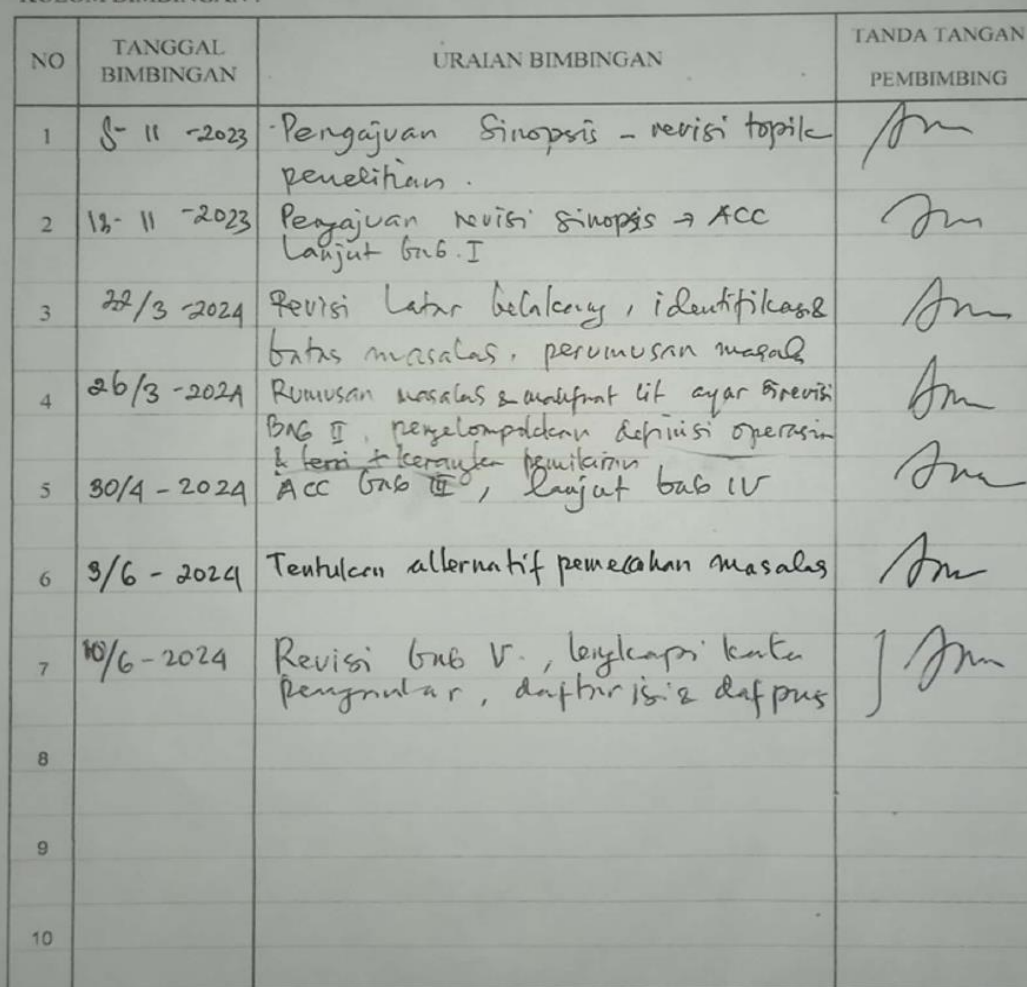 NO TANGGAL BIMBINGAN URAIAN BIMBINGAN TANDA TANGAN PEMBIMBING
1 8-11-2023 Pengajuan Sinopsis - revisi topik
penelitian.
2 13-11-2023 Pengajuan revisi sinopsis → ACC
Lanjut bab. I
3 22/3-2024 Revisi Latar belakang, identifikas &
batas masalah, perumusan masalah
4 26/3-2024 Rumusan masalah & manfaat lit agar direvisi
Bab II, pengelompokkan definisi operasin
& teori + kerangka pemikiran
5 30/4-2024 ACC bab III, lanjut bab IV
6 3/6-2024 Tentukan alternatif pemecahan masalah
7 10/6-2024 Revisi bab V., lengkapi kata
pengantar, daftar isi & dafpus
8
9
10